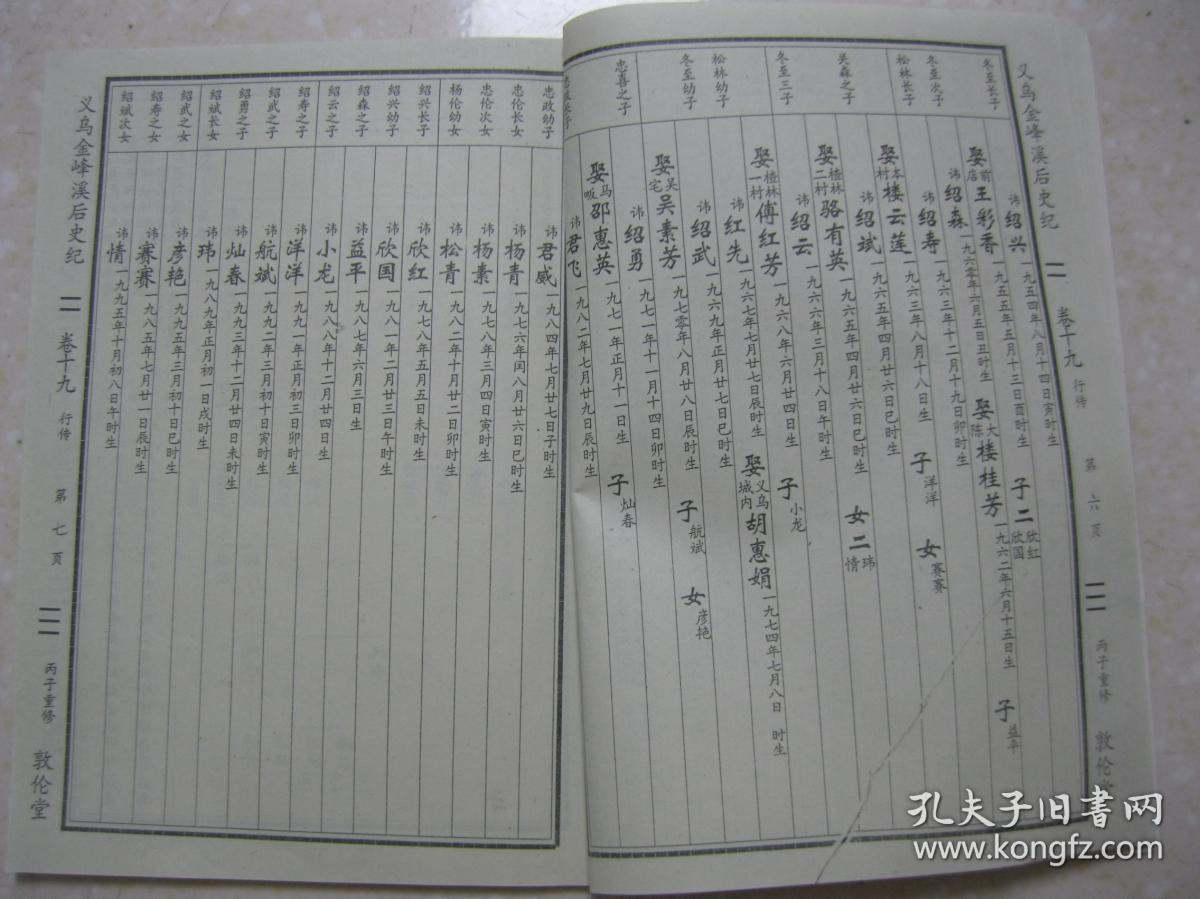 义乌金峰溪后史纪 卷十九 行传 第六页 丙子重修 敦伦
冬至长子 讳绍兴一九五四年八月十四日寅时生
娶前店王彩香一九五五年五月十三日酉时生 子二欣红欣国
冬至次子 讳绍森一九六零年六月五日丑时生 娶大陈楼桂芳一九六二年六月十五日生 子益平
松林长子 讳绍寿一九六三年十二月十九日卯时生
娶本村楼云莲一九六三年八月十八日生 子洋洋 女赛赛
吴森之子 讳绍斌一九六五年四月廿六日巳时生
娶楂林二村骆有英一九六五年四月廿六日巳时生 女二玮情
冬至三子 讳绍云一九六六年三月十八日午时生
娶楂林一村傅红芳一九六八年六月四日生 子小龙
松林幼子 讳红先一九六七年七月廿七日辰时生 娶义乌城内胡惠娟一九七四年七月八日 时生
冬至幼子 讳绍武一九六九年正月廿七日巳时生
娶吴宅吴素芳一九七零年八月廿八日辰时生 子航斌 女彦艳
忠喜之子 讳绍勇一九七一年十一月十四日卯时生
娶马畈邵惠英一九七一年正月十一日生 子灿春
长子 讳君飞一九八二年七月廿九日辰时生
忠政幼子 讳君威一九八四年七月廿七日子时生
忠伦长女 讳杨青一九七六年闰八月廿六日巳时生
忠伦次女 讳杨素一九七八年三月四日寅时生
杨伦幼女 讳松青一九八二年十月廿二日卯时生
绍兴长子 讳欣红一九七八年五月五日未时生
绍兴幼子 讳欣国一九八一年二月廿三日午时生
绍森之子 讳益平一九八七年六月三日生
绍云之子 讳小龙一九八八年十二月廿四日生
绍寿之子 讳洋洋一九九一年正月初三日卯时生
绍武之子 讳航斌一九九二年三月初十日寅时生
绍勇之子 讳灿春一九九三年十二月廿四日未时生
绍斌长女 讳玮一九八九年正月初一日戌时生
绍武之女 讳彦艳一九九五年三月初十日巳时生
绍寿之女 讳赛赛一九八五年七月廿一日辰时生
绍斌次女 讳情一九九五年十月初八日午时生
义乌金峰溪后史纪 卷十九 行传 第七页 丙子重修 敦伦堂
孔夫子旧书网
www.kongfz.com